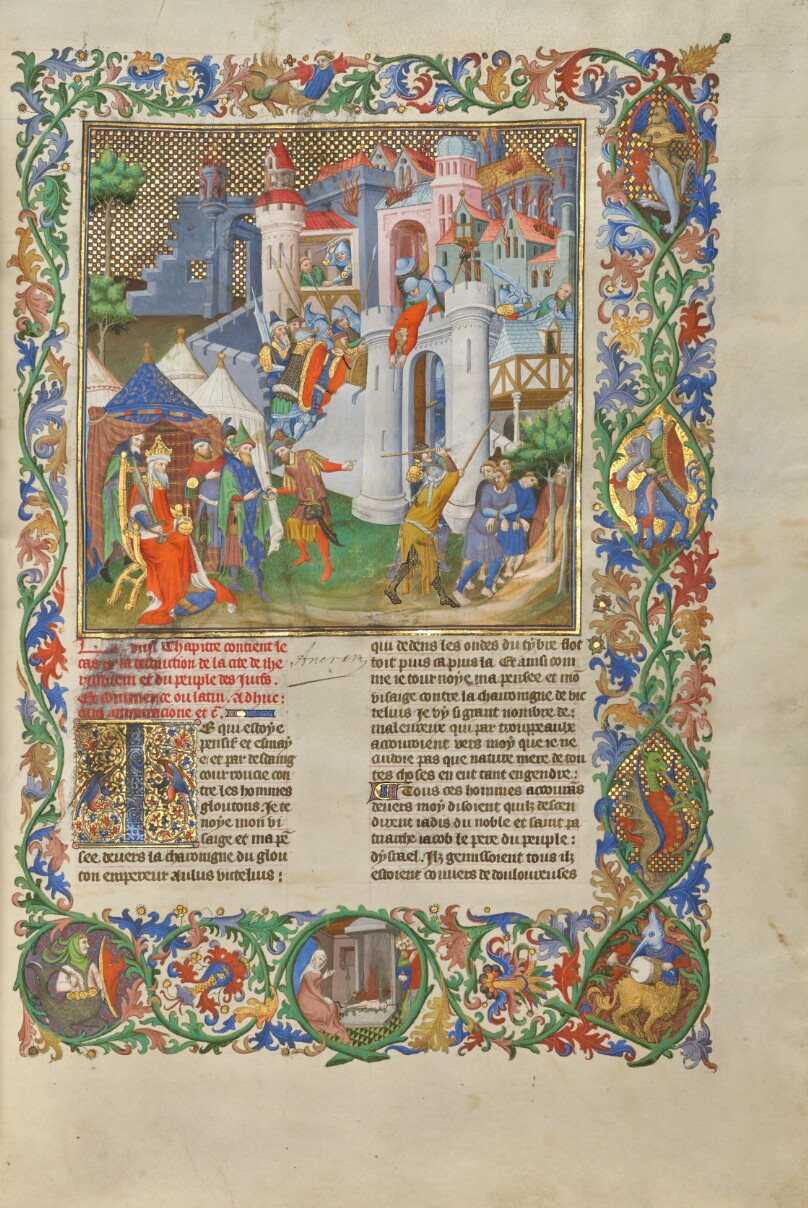 chapitre contient le
cas et la destruction de la cite de ihe
rusalem et du peuple des Juifs.
Et commence ou latin. Adhuc:
et c̄.
Ancran
E qui estoye
pensif et esmay
e et par desdaing
courroucie con
tre les hommes
gloutons. Je re
noye mon vi
saige et ma pē
see devers la charoingne du glou
ton empereur Aulus victelius:
qui dedens les ondes du tybre flot
toit puis ca puis la. Et ainsi com
me ie tournoye, ma pensee et mō
visaige contre la charoingne de vic
telius Je vy si grant nombre de:
maleureux qui par trouppeaulx
accouroient vers moy que ie ne
cuidoie pas que nature mere de tou
tes choses en eut tant engendre:
Tous ces hommes accourās
devers moy disoient quilz descen
dirent iadis du noble et saint pa
triarche iacob le pere du peuple:
dysrael. Ilz gemissoient tous ilz
estoient couvers de douloureuses